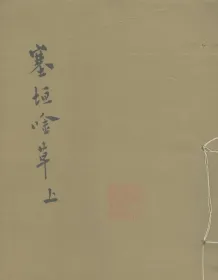 塞垣吟草上